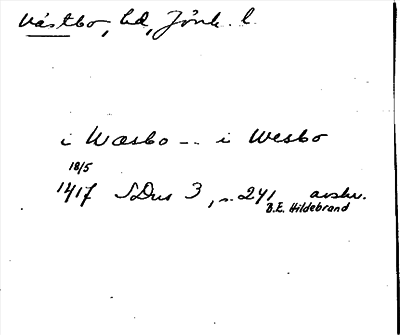 Västbo, hd, Jönk. l.
i Wæsbo -- i Wesbo
18/5
1417 SDns 3, n. 241 avskr.
B.E. Hildebrand